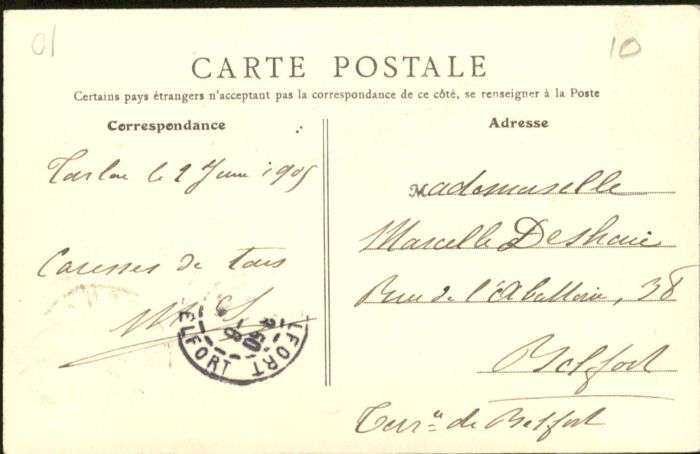 01
10
CARTE POSTALE
Certains pays étrangers n'acceptant pas la correspondance de ce côté, se renseigner à la Poste
Correspondance
le 2 Juin 1905
Caresses de tous
BELFORT
Adresse
Mademoiselle
Marcelle Deshaie
Rue de l'Abattoir, 38
Belfort
Terre de Belfort